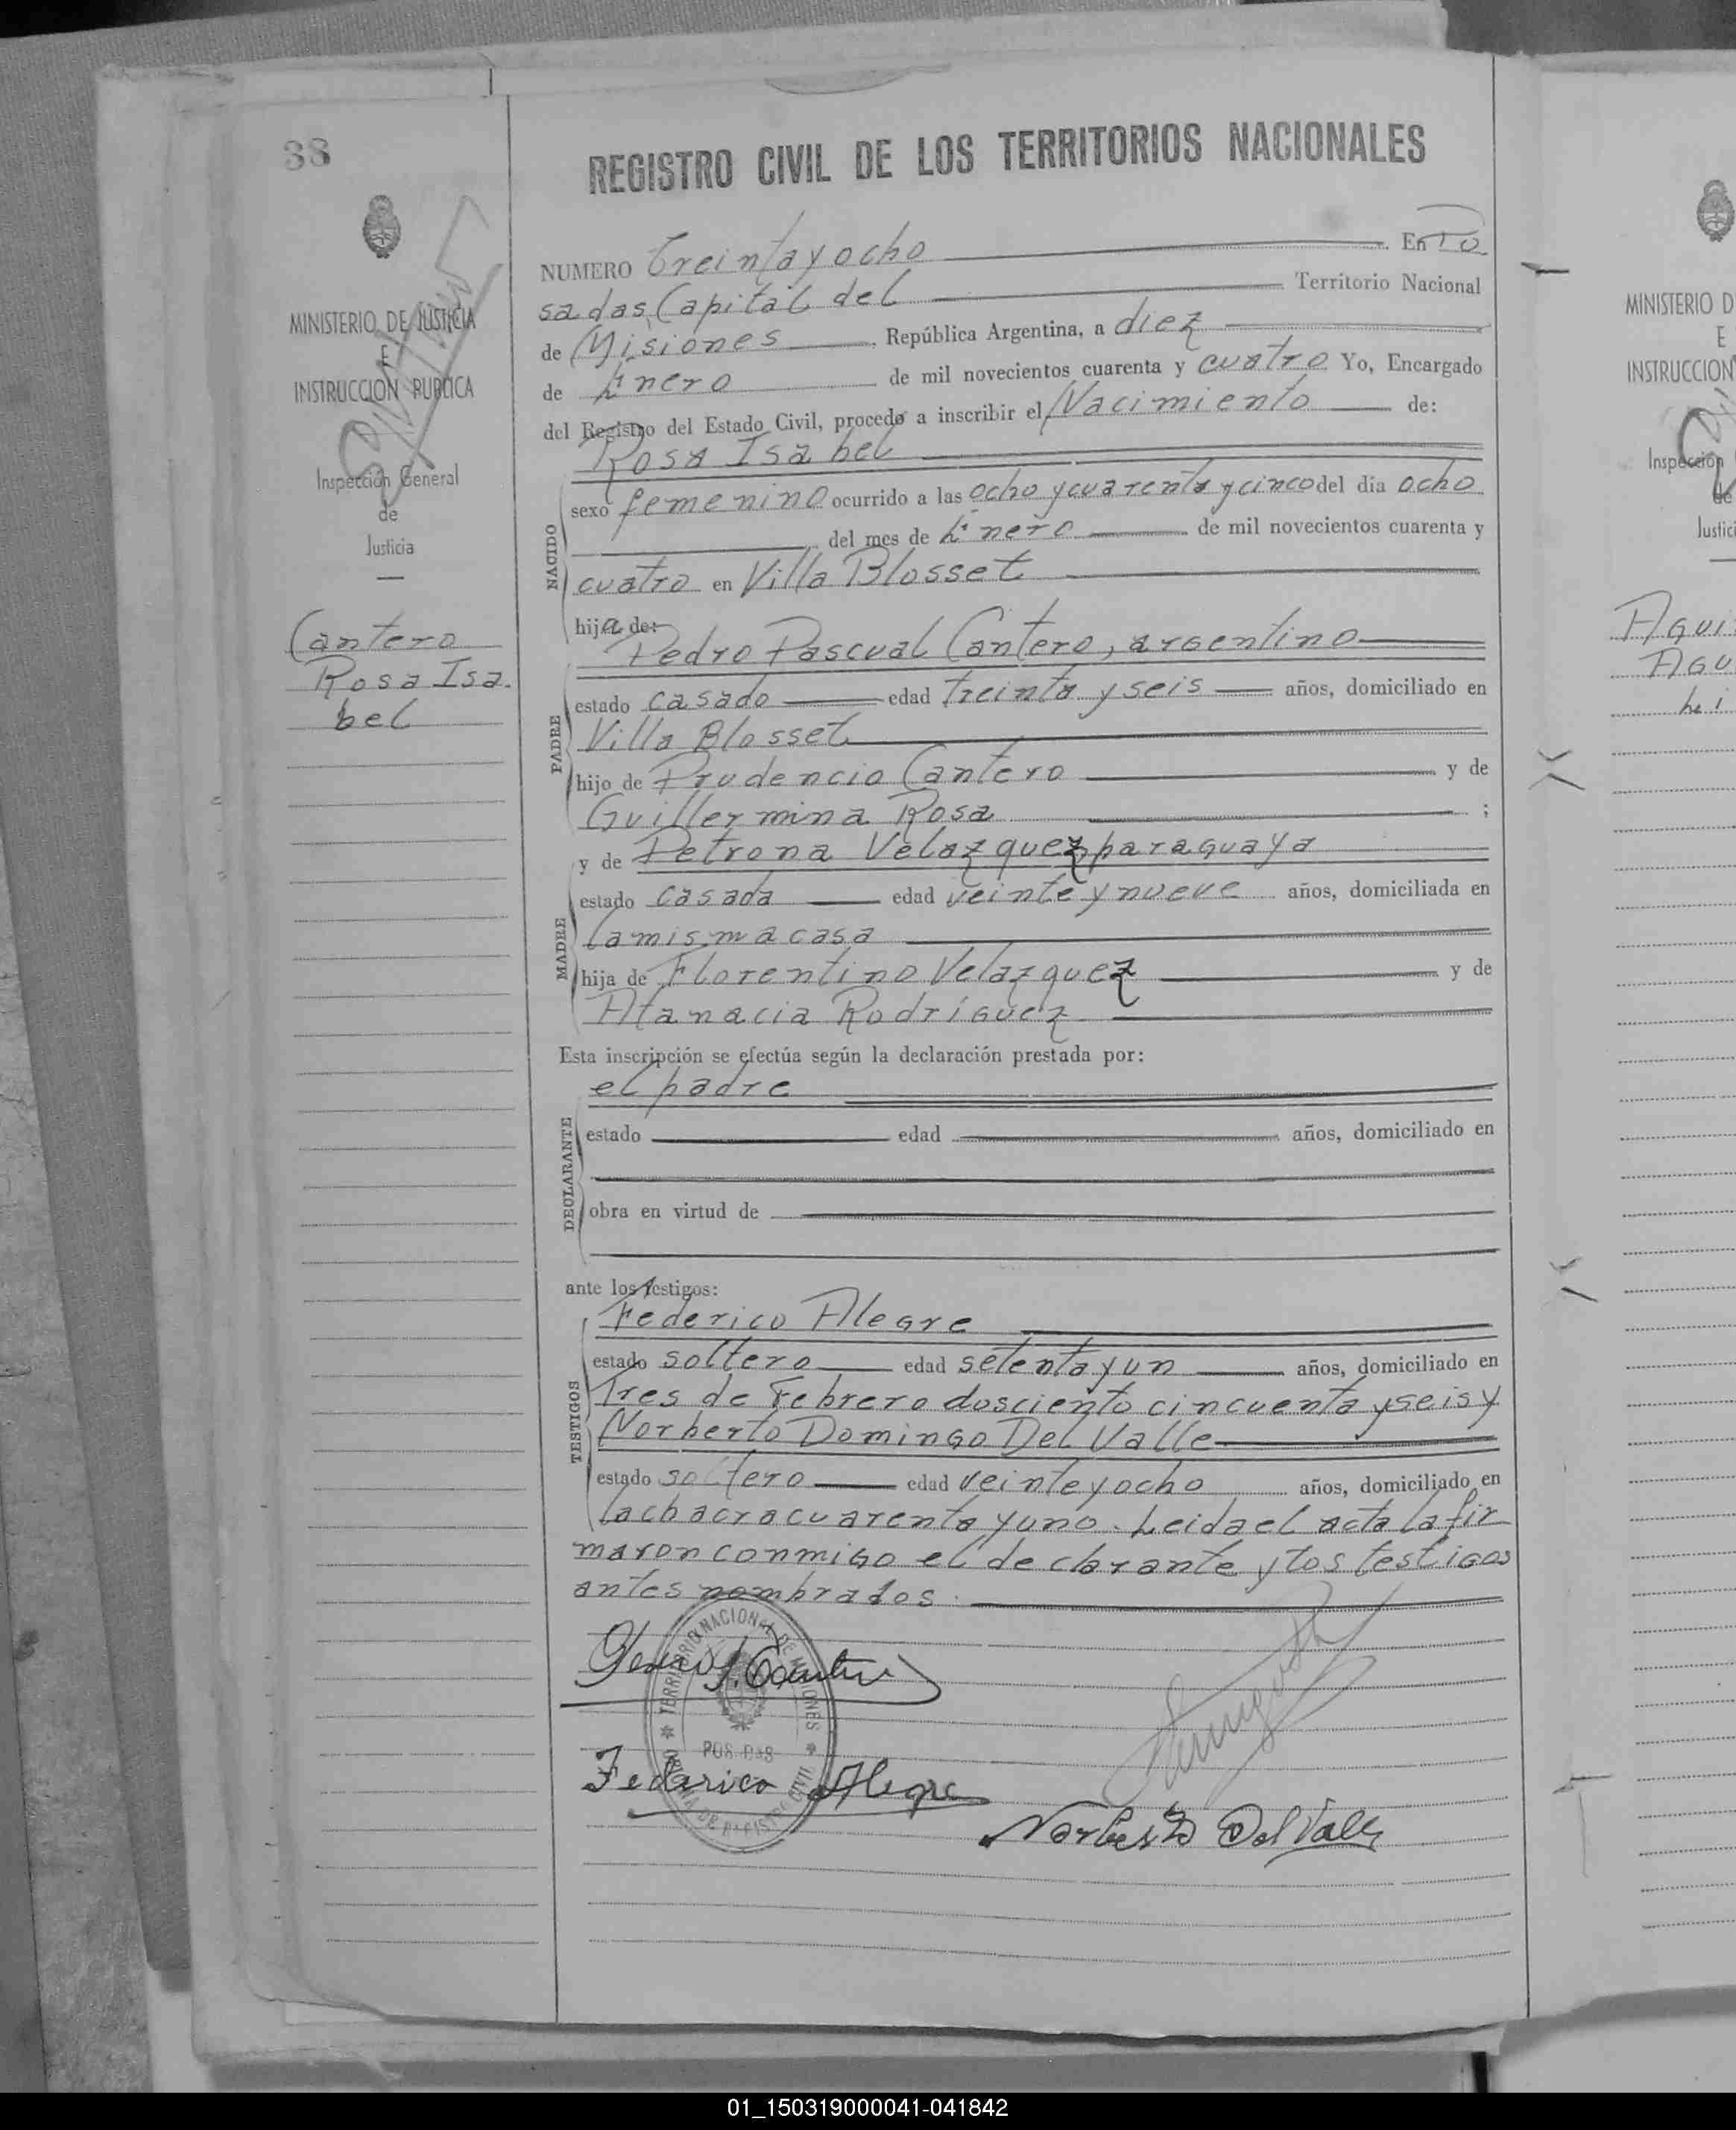 38
REGISTRO CIVIL DE LOS TERRITORIOS NACIONALES
NUMERO Treinta y ocho En Po
sadas, Capital del Territorio Nacional
de Misiones, República Argentina, a diez
de Enero de mil novecientos cuarenta y cuatro Yo, Encargado
del Registro del Estado Civil, procedo a inscribir el Nacimiento de:
Rosa Isabel
NACIDO
sexo femenino ocurrido a las ocho y cuarenta y cinco del día ocho
del mes de Enero de mil novecientos cuarenta y
cuatro en Villa Blosset
hija de:
Pedro Pascual Cantero, argentino
PADRE
estado casado edad treinta y seis años, domiciliado en
Villa Blosset
hijo de Prudencio Cantero y de
Guillermina Rosa ;
y de Petrona Velazquez, paraguaya
MADRE
estado casada edad veinte y nueve años, domiciliada en
la misma casa
hija de Florentino Velazquez y de
Atanacia Rodríguez
Esta inscripción se efectúa según la declaración prestada por:
el padre
DECLARANTE
estado edad años, domiciliado en
obra en virtud de
ante los testigos:
Federico Alegre
TESTIGOS
estado soltero edad setenta y un años, domiciliado en
Tres de Febrero dosciento cincuenta y seis y
Norberto Domingo Del Valle
estado soltero edad veinte y ocho años, domiciliado en
la chacra cuarenta y uno. Leida el acta la fir
maron conmigo el declarante y los testigos
antes nombrados.
Cantero
TERRITORIO NACIONAL DE MISIONES
POSADAS
Federico Alegre
Norberto Del Valle
MINISTERIO DE JUSTICIA
E
INSTRUCCION PUBLICA
Inspección General
de
Justicia
Cantero
Rosa Isa
bel
MINISTERIO D
E
INSTRUCCION
Inspección
de
Justici
Agui
Agu
01_150319000041-041842